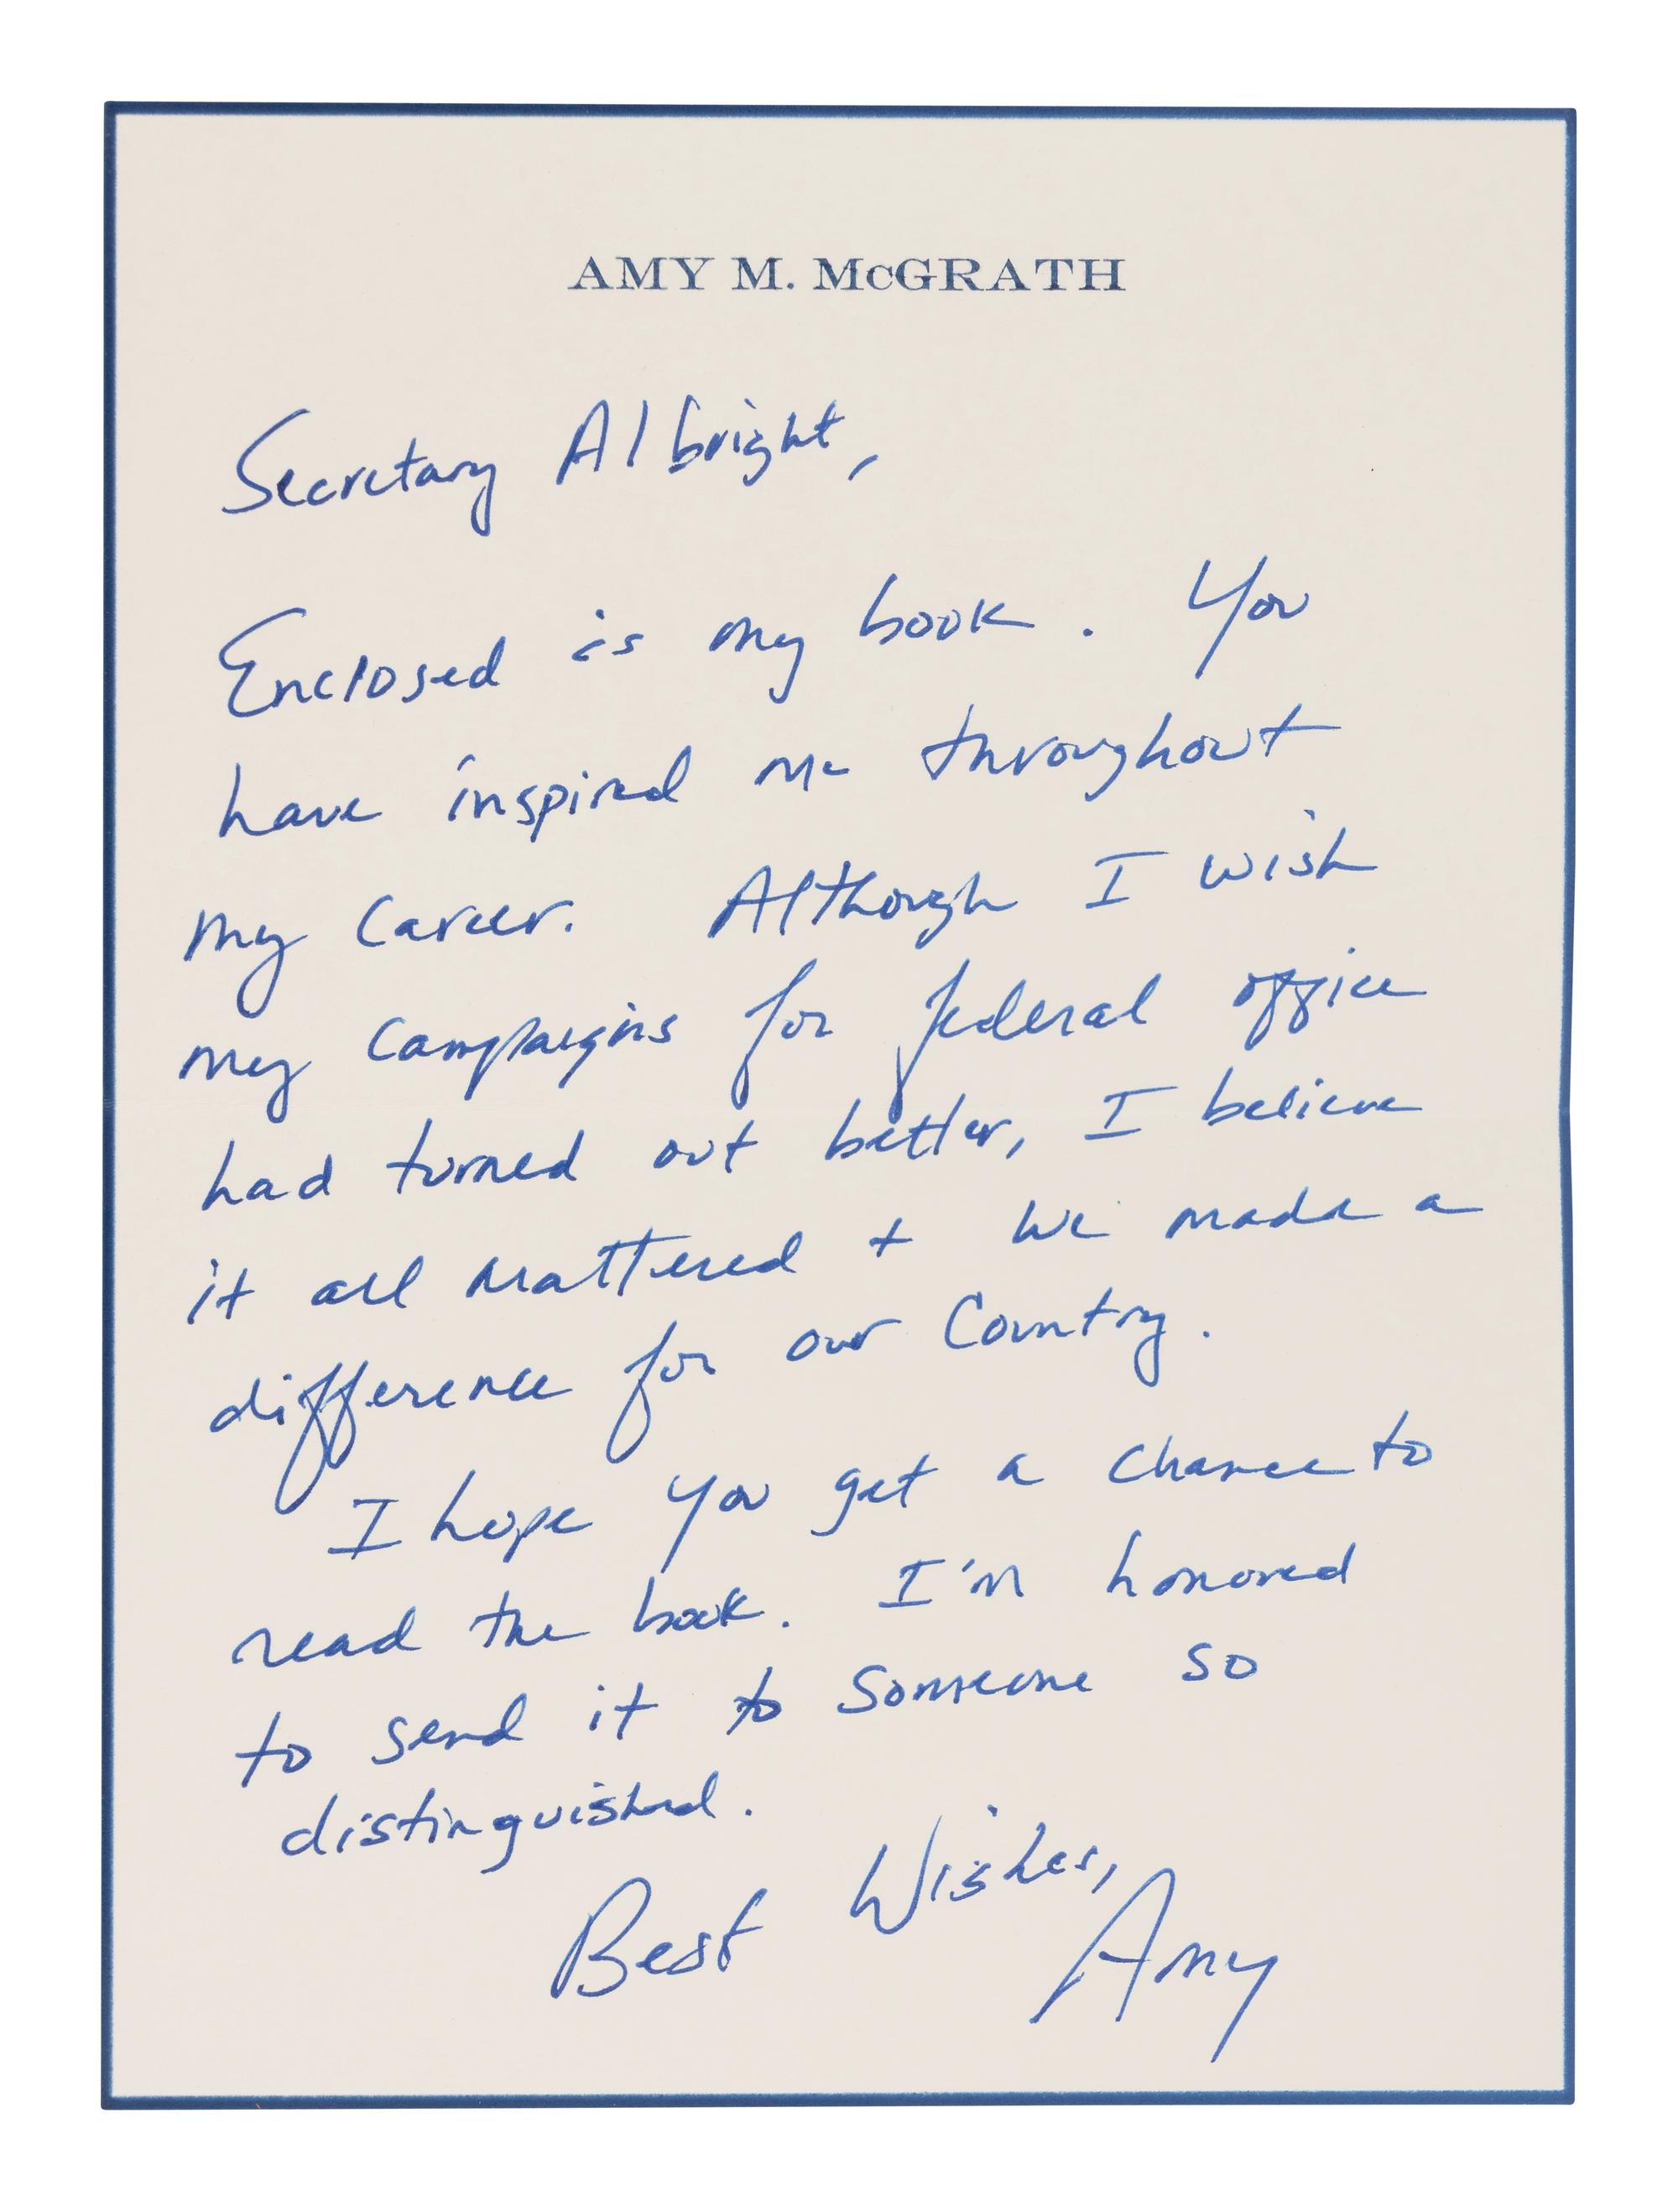 AMY M. McGRATH
Secretary Albright,
Enclosed is my book. You
have inspired me throughout
my career. Although I wish
my campaigns for federal office
had turned out better, I believe
it all mattered + we made a
difference for our Country.
I hope you get a chance to
read the book. I'm honored
to send it to someone so
distinguished.
Best Wishes,
Amy